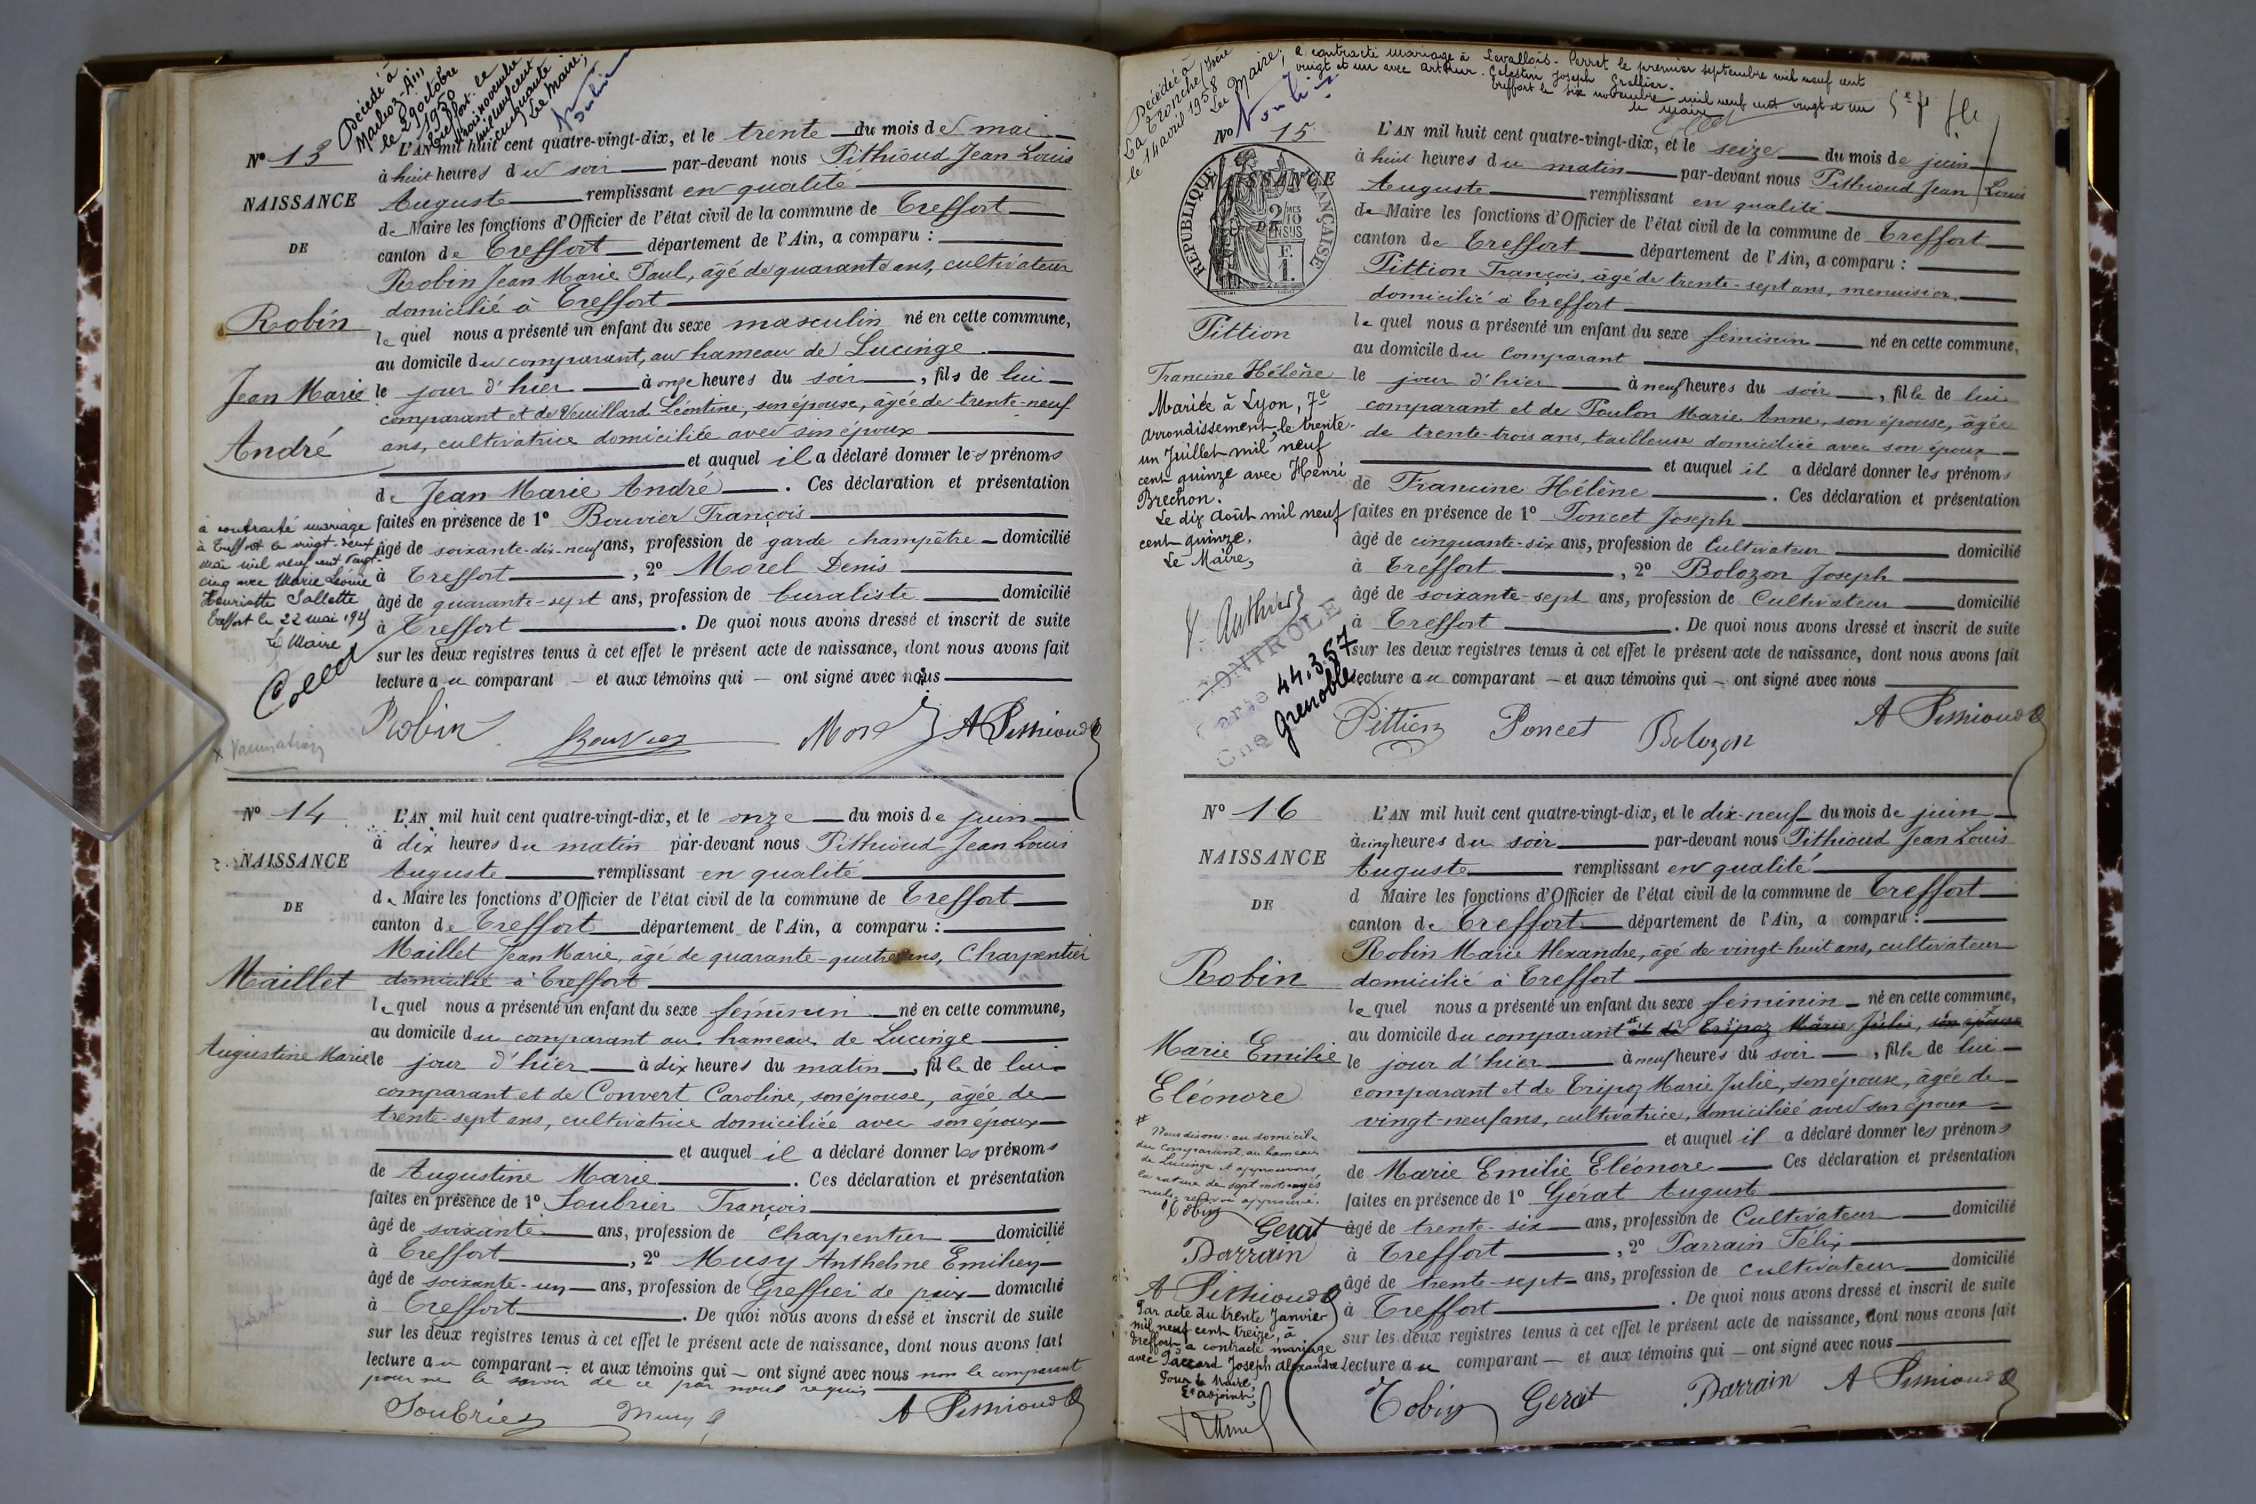 Décédé à
Marboz-Ain
le 29 octobre
1950
Treffort le
trois novembre
mil neuf cent
cinquante
Le Maire,
Nº 13
NAISSANCE
DE
Robin
Jean Marie
André
L'AN mil huit cent quatre-vingt-dix, et le trente du mois de mai
à huit heures du soir par-devant nous Pithioud Jean Louis
Auguste remplissant en qualité
de Maire les fonctions d'Officier de l'état civil de la commune de Treffort
canton de Treffort département de l'Ain, a comparu :
Robin Jean Marie Paul, âgé de quarante ans, cultivateur
domicilié à Treffort
lequel nous a présenté un enfant du sexe masculin né en cette commune,
au domicile du comparant, au hameau de Lucinge
le jour d'hier à onze heures du soir, fils de lui
comparant et de Veuillard Léontine, son épouse, âgée de trente-neuf
ans, cultivatrice domiciliée avec son époux
et auquel il a déclaré donner les prénoms
de Jean Marie André. Ces déclaration et présentation
faites en présence de 1º Bouvier François
âgé de soixante-dix-neuf ans, profession de garde champêtre domicilié
à Treffort, 2º Morel Denis
âgé de quarante-sept ans, profession de buraliste domicilié
à Treffort. De quoi nous avons dressé et inscrit de suite
sur les deux registres tenus à cet effet le présent acte de naissance, dont nous avons fait
lecture au comparant et aux témoins qui ont signé avec nous
à contracté mariage
à Treffort le vingt-deux
mai mil neuf cent vingt-
cinq avec Marie Léonie
Henriette Sallette
Treffort le 22 mai 1925
Le Maire
Collet
x Vaccination
Robin Bouvier Morel A Pithioud
Nº 14
NAISSANCE
DE
Maillet
Augustine Marie
L'AN mil huit cent quatre-vingt-dix, et le onze du mois de juin
à dix heures du matin par-devant nous Pithioud Jean Louis
Auguste remplissant en qualité
de Maire les fonctions d'Officier de l'état civil de la commune de Treffort
canton de Treffort département de l'Ain, a comparu :
Maillet Jean Marie, âgé de quarante-quatre ans, Charpentier
domicilié à Treffort
lequel nous a présenté un enfant du sexe féminin né en cette commune,
au domicile du comparant au hameau de Lucinge
le jour d'hier à dix heures du matin, fille de lui
comparant et de Convert Caroline, son épouse, âgée de
trente-sept ans, cultivatrice domiciliée avec son époux
et auquel il a déclaré donner les prénoms
de Augustine Marie. Ces déclaration et présentation
faites en présence de 1º Soubrier François
âgé de soixante ans, profession de Charpentier domicilié
à Treffort, 2º Musy Anthelme Emilien
âgé de soixante-un ans, profession de Greffier de paix domicilié
à Treffort. De quoi nous avons dressé et inscrit de suite
sur les deux registres tenus à cet effet le présent acte de naissance, dont nous avons fait
lecture au comparant et aux témoins qui ont signé avec nous non le comparant
pour ne le savoir de ce par nous requis
Soubrier Musy A Pithioud
Décédée à
La Tronche/Isère
le 14 avril 1958
Le Maire,
a contracté mariage à Levallois-Perret le premier septembre mil neuf cent
vingt et un avec Arthur Celestin Joseph Grellier.
Treffort le six novembre mil neuf cent vingt et un
le Maire
Collet
Nº 15
NAISSANCE
DE
RÉPUBLIQUE FRANÇAISE
2/10 EN SUS
Pittion
Francine Hélène
Mariée à Lyon, 7e
Arrondissement, le trente-
un Juillet mil neuf
cent quinze avec Henri
Brechon.
Le dix Août mil neuf
cent quinze.
Le Maire,
CONTRÔLE
Carte 44.357
Cne Grenoble
L'AN mil huit cent quatre-vingt-dix, et le seize du mois de juin
à huit heures du matin par-devant nous Pithioud Jean Louis
Auguste remplissant en qualité
de Maire les fonctions d'Officier de l'état civil de la commune de Treffort
canton de Treffort département de l'Ain, a comparu :
Pittion François, âgé de trente-sept ans, menuisier
domicilié à Treffort
lequel nous a présenté un enfant du sexe féminin né en cette commune,
au domicile du comparant
le jour d'hier à neuf heures du soir, fille de lui
comparant et de Poulon Marie Anne, son épouse, âgée
de trente-trois ans, tailleuse domiciliée avec son époux
et auquel il a déclaré donner les prénoms
de Francine Hélène. Ces déclaration et présentation
faites en présence de 1º Poncet Joseph
âgé de cinquante-six ans, profession de Cultivateur domicilié
à Treffort, 2º Bolozon Joseph
âgé de soixante-sept ans, profession de Cultivateur domicilié
à Treffort. De quoi nous avons dressé et inscrit de suite
sur les deux registres tenus à cet effet le présent acte de naissance, dont nous avons fait
lecture au comparant et aux témoins qui ont signé avec nous
Pittion Poncet Bolozon A Pithioud
Nº 16
NAISSANCE
DE
Robin
Marie Emilie
Eléonore
L'AN mil huit cent quatre-vingt-dix, et le dix-neuf du mois de juin
à cinq heures du soir par-devant nous Pithioud Jean Louis
Auguste remplissant en qualité
d Maire les fonctions d'Officier de l'état civil de la commune de Treffort
canton de Treffort département de l'Ain, a comparu :
Robin Marie Alexandre, âgé de vingt-huit ans, cultivateur
domicilié à Treffort
lequel nous a présenté un enfant du sexe féminin né en cette commune,
au domicile du comparant et de Tripoz Marie Julie, son épouse
le jour d'hier à neuf heures du soir, fille de lui
comparant et de Tripoz Marie Julie, son épouse, âgée de
vingt-neuf ans, cultivatrice, domiciliée avec son époux
et auquel il a déclaré donner les prénoms
de Marie Emilie Eléonore Ces déclaration et présentation
faites en présence de 1º Gérat Auguste
âgé de trente-six ans, profession de Cultivateur domicilié
à Treffort, 2º Parrain Félix
âgé de trente-sept ans, profession de cultivateur domicilié
à Treffort. De quoi nous avons dressé et inscrit de suite
sur les deux registres tenus à cet effet le présent acte de naissance, dont nous avons fait
lecture au comparant et aux témoins qui ont signé avec nous
Nous disons: au domicile
du comparant, au hameau
de Lucinge et approuvons
la rature de sept mots rayés
nuls, renvoi approuvé.
Robin
Gerat
Parrain
A Pithioud
Par acte du trente Janvier
mil neuf cent treize, à
Treffort a contracté mariage
avec Paccard Joseph Alexandre
Pour le Maire,
L'adjoint,
Robin Gerat Parrain A Pithioud